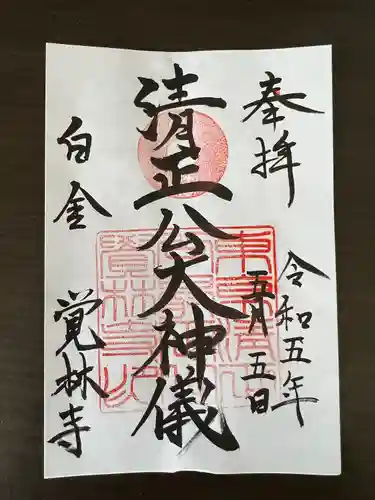 奉拝
令和五年
五月五日
清正公大神儀
白金
覚林寺